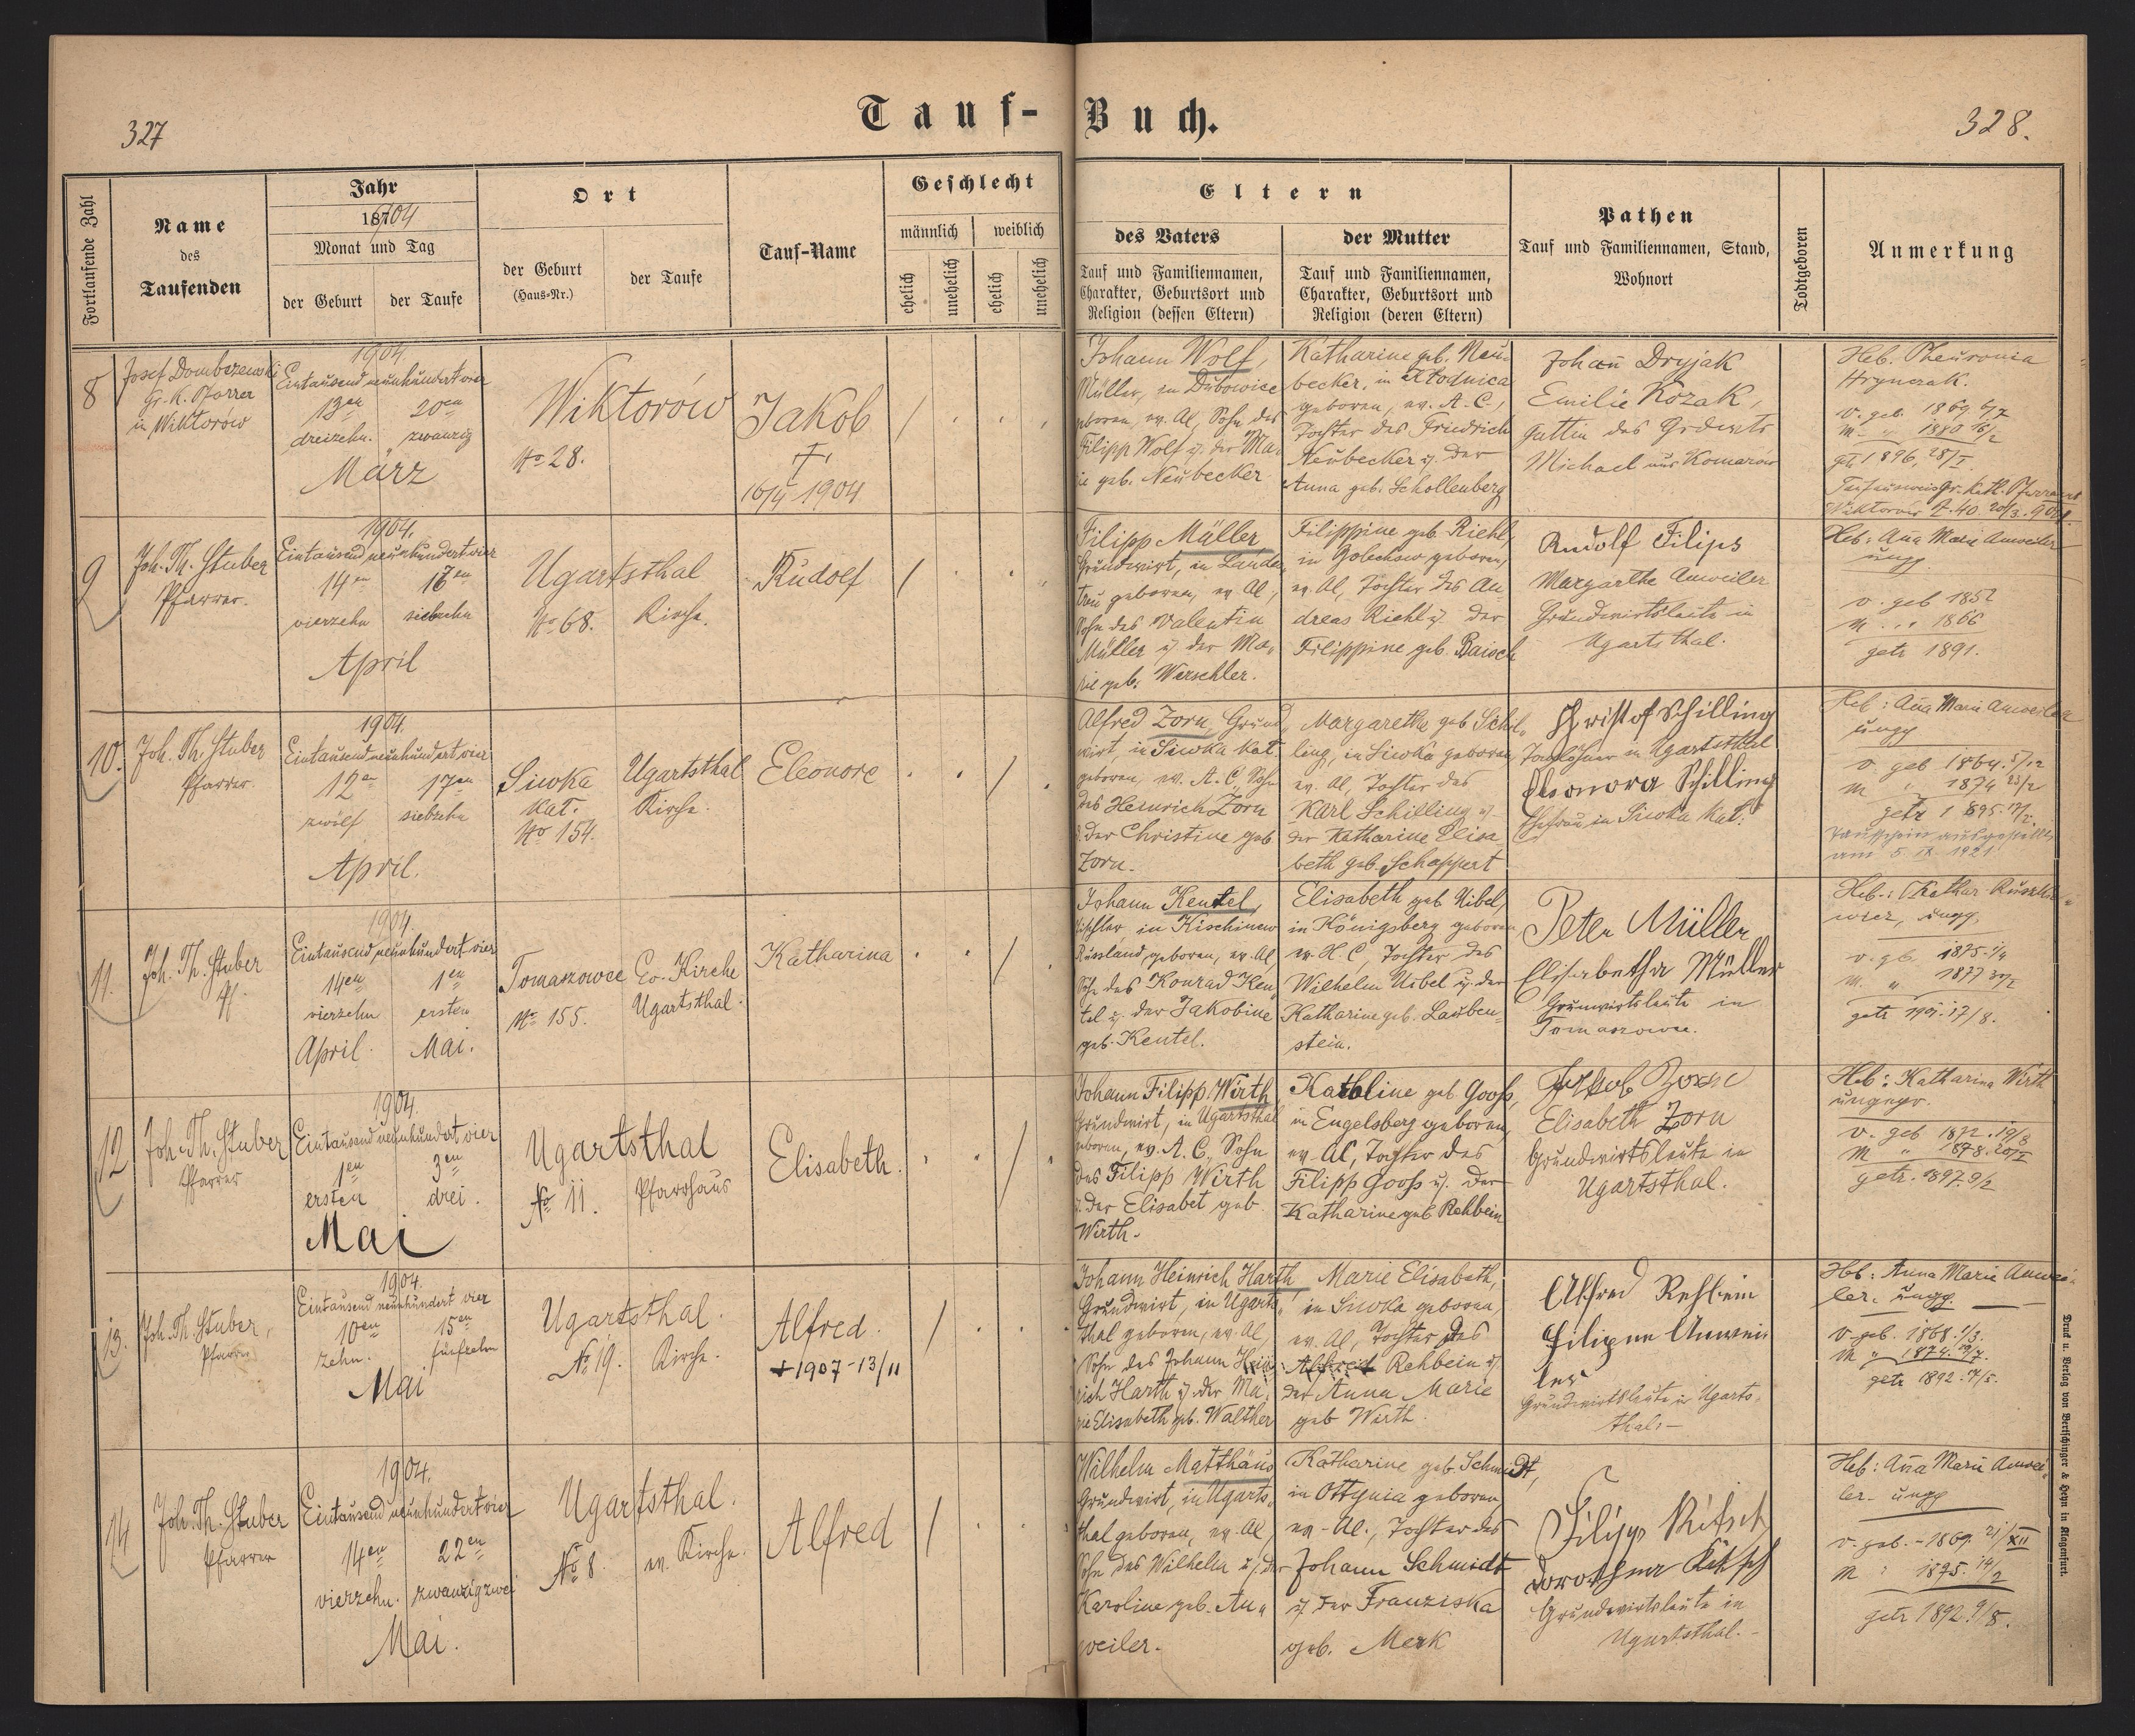 327
Tauf-Buch.
328.
Fortlaufende Zahl
Name
des
Taufenden
Jahr
1904
Monat und Tag
der Geburt
der Taufe
Ort
der Geburt
(Haus-Nr.)
der Taufe
Tauf-Name
Geschlecht
männlich
weiblich
ehelich
unehelich
ehelich
unehelich
Eltern
des Vaters
Tauf und Familiennamen,
Charakter, Geburtsort und
Religion (dessen Eltern)
der Mutter
Tauf und Familiennamen,
Charakter, Geburtsort und
Religion (deren Eltern)
Pathen
Tauf und Familiennamen, Stand,
Wohnort
Todtgeboren
Anmerkung
8
Josef Dombrzewski
Gr. K. Pfarrer
in Wiktorów
1904.
Eintausend neunhundert vier
13en
20en
dreizehn.
zwanzig
März
Wiktorów
No 28.
Jakob
†
1904
Johann Wolf,
Müller, in Dubowice
geboren, ev. Al, Sohn des
Filipp Wolf u. der Ma-
rie geb. Neubecker
Katharine geb. Neu-
becker, in Kłodnica
geboren, ev. A. C.,
Tochter des Friedrich
Neubecker u. der
Anna geb. Schollenberg
Johan Dryjak
Emilie Kozak,
Gattin des
Michael aus Komarow
Heb.
Hryncrak.
v. geb. 1869
m. " 1880
getr. 1896
9
Joh. Th. Stuber
Pfarrer.
1904.
Eintausend neunhundert vier
14en
17en
vierzehn
siebzehn
April
Ugartsthal
No 68.
Kirche.
Rudolf
Filipp Müller
Grundwirt, in Landes-
treu geboren, ev. Al,
Sohn des Valentin
Müller u. der Ma-
rie geb. Werschler.
Filippine geb. Riehl,
in Bolechow geboren,
ev. Al, Tochter des An-
dreas Riehl u. der
Filippine geb. Baisch
Rudolf Filips
Margarthe Anweiler
Grundwirtsleute in
Ugartsthal.
Heb: Ana Marie Anweiler
ungp
v. geb 1852
m. " 1866
getr 1891.
10.
Joh. Th. Stuber
Pfarrer.
1904.
Eintausend neunhundert vier
12en
17en
zwölf
siebzehn
April.
Siwka
Kat.
No 154.
Ugartsthal
Kirche.
Eleonore
Alfred Zorn, Grund-
wirt, in Siwka Kat.
geboren, ev. A. C., Sohn
des Heinrich Zorn
u. der Christine geb
Zorn.
Margareth geb Schil-
ling, in Siwka geboren,
ev. Al, Tochter des
Karl Schilling u.
der Katharine Elisa
beth geb. Schappert
Christof Schilling
in Ugartsthal
Eleonora Schilling
Ehefrau in Siwka Kat.
Heb: Ana Marie Anweiler
ungp
v. geb 1864. 5/12
m " 1874 23/2
getr 1895.
Taufschein ausgestellt
am 5. IX. 1921
11.
Joh. Th. Stuber
Pf.
1904
Eintausend neunhundert vier
14en
1en
vierzehn
ersten
April.
Mai.
Tomaszowce
No 155.
Ev. Kirche
Ugartsthal.
Katharina
Johann Kentel,
Tischler in Kischinew
Russland, geboren, ev. Al,
Sohn des Konrad Ken-
tel u. der Jakobine
geb. Kentel.
Elisabeth geb Uibel,
in Königsberg geboren
ev. H. C, Tochter des
Wilhelm Uibel u. der
Katharine geb. Lauben-
stein.
Peter Müller
Elisabetha Müller
Grunwirtsleute in
Tomaszowce.
v. gb. 1875
m. " 1877
getr 1901. 17/8.
12
Joh. Th. Stuber
Pfarrer
1904.
Eintausend neunhundert vier
1en
3en
ersten
drei.
Mai
Ugartsthal
No 11.
Pfarrhaus
Elisabeth.
Johann Filipp Wirth
Grundwirt, in Ugartsthal
geboren, ev. A. C., Sohn
des Filipp Wirth
u. der Elisabet geb
Wirth.
geb Gooß,
in Engelsberg geboren,
ev. AC, Tochter des
Filipp Gooß u. der
Katharine geb Rehbein
Jakob Zorn
Elisabeth Zorn
Grundwirtsleute in
Ugartsthal.
Heb: Katharina Wirth
v. geb 1872. 19/8
m " 1878. 20/I
getr. 1897. 9/2
13.
Joh. Th. Stuber,
Pfarrer
1904.
Eintausend neunhundert vier
10en
15en
zehn.
fünfzehn
Mai
Ugartsthal.
No 19.
Kirche.
Alfred.
+ 1907 - 13/11
Johann Heinrich Harth
Grundwirt, in Ugarts-
thal geboren, ev. Al,
Sohn des Johann Hein
rich Harth u. der Ma-
rie Elisabeth geb. Walther
Marie Elisabeth,
in Siwka geboren,
ev. Al, Tochter des
Alfred Rehbein u.
der Anna Marie
geb Wirth.
Alfred Rehbein
Filippine Anwei
ler
Grundwirtsleute in Ugarts-
thal.-
Heb: Anna Marie Anwei-
ler. ungp.
v. geb. 1868. 1/3.
m " 1874.
getr 1892.
14
Joh. Th. Stuber
Pfarrer
1904.
Eintausend neunhundert vier
14en
22en
vierzehn.
zwanzigzwei
Mai.
Ugartsthal.
No 8.
ev. Kirche.
Alfred
Wilhelm Matthäus
Grundwirt, in Ugarts-
thal geboren, ev. Al,
Sohn des Wilhelm u. der
Karoline geb. An-
weiler.
Katharine geb. Schmidt,
in Ottynia geboren,
ev. Al., Tochter des
Johann Schmidt
u der Franziska
geb. Merk
Filipp Kitsch
Dorothea Kitsch
Grundwirtsleute in
Ugartsthal.-
Heb: Ana Marie Anwei-
ler. ungp
v. geb. - 1869. 21/XII
m : 1875. 14/2
getr 1892. 9/8.
Druck u. Verlag von Bertschinger & Heyn in Klagenfurt.